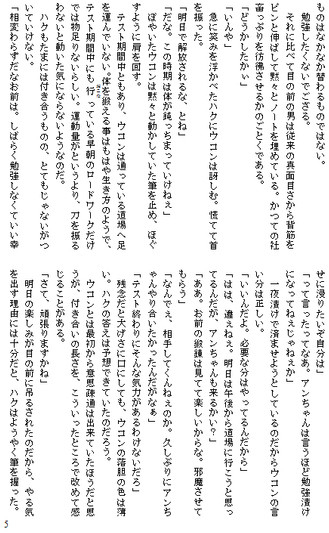 ものはなかなか替わるものではない。
　勉強したくないでござる。
　それに比べて目の前の男は従来の真面目さから背筋を
ピンと伸ばして黙々とノートを埋めている。かつての社
畜っぷりを彷彿させるかのごとくである。
「どうかしたかぃ」
「いんや」
　急に笑みを浮かべたハクにウコンは訝しむ。慌てて首
を振った。
「明日で解放されるな、とね」
「だな。この時期は体が鈍っちまっていけねぇ」
　ぼやいたウコンは黙々と動かしていた筆を止め、ほぐ
すように肩を回す。
　テスト期間中ともあり、ウコンは通っている道場へ足
を運んでいない。体を鍛える事はもはや生き方のようで、
テスト期間中にも行っている早朝のロードワークだけ
では物足りないらしい。運動量がというより、刀を振る
わないと動いた気にならないようなのだ。
　ハクもたまには付き合うものの、とてもじゃないがつ
いていけない。
「相変わらずだなお前は。しばらく勉強しなくていい幸
せに浸りたいぞ自分は」
「って言ったってなあ。アンちゃんは言うほど勉強漬け
になってねぇじゃねぇか」
　一夜漬けで済ませようとしているのだからウコンの言
分は正しい。
「いいんだよ。必要な分はやってるんだから」
「はは、違ぇねぇ。明日は午後から道場に行こうと思っ
てるんだが、アンちゃんも来るかい？」
「ああ。お前の鍛錬は見てて楽しいからな。邪魔させて
もらう」
「なんでぇ、相手してくんねぇのか。久しぶりにアンち
ゃんとやり合いたかったんだがなぁ」
「テスト終わりにそんな気力があるわけないだろ」
　残念だと大げさに口にしても、ウコンの落胆の色は薄
い。ハクの答えは予想できていたのだろう。
　ウコンとは最初から意思疎通は出来ていたほうだと思
うが、付き合いの長さを、こういったところで改めて感
じることがある。
「さて、頑張りますかね」
　明日の楽しみが目の前に吊るされたのだから、やる気
を出す理由には十分だと、ハクはようやく筆を握った。
5